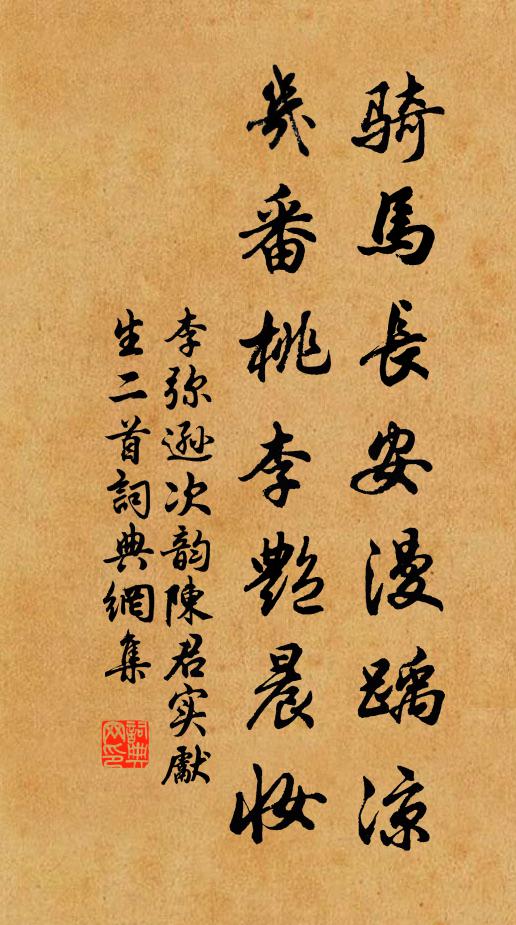 騎馬長安漫踽涼
幾番桃李艷晨妝
李弥遜次韵陳君实獻
生二首詞典網集
詞典网印